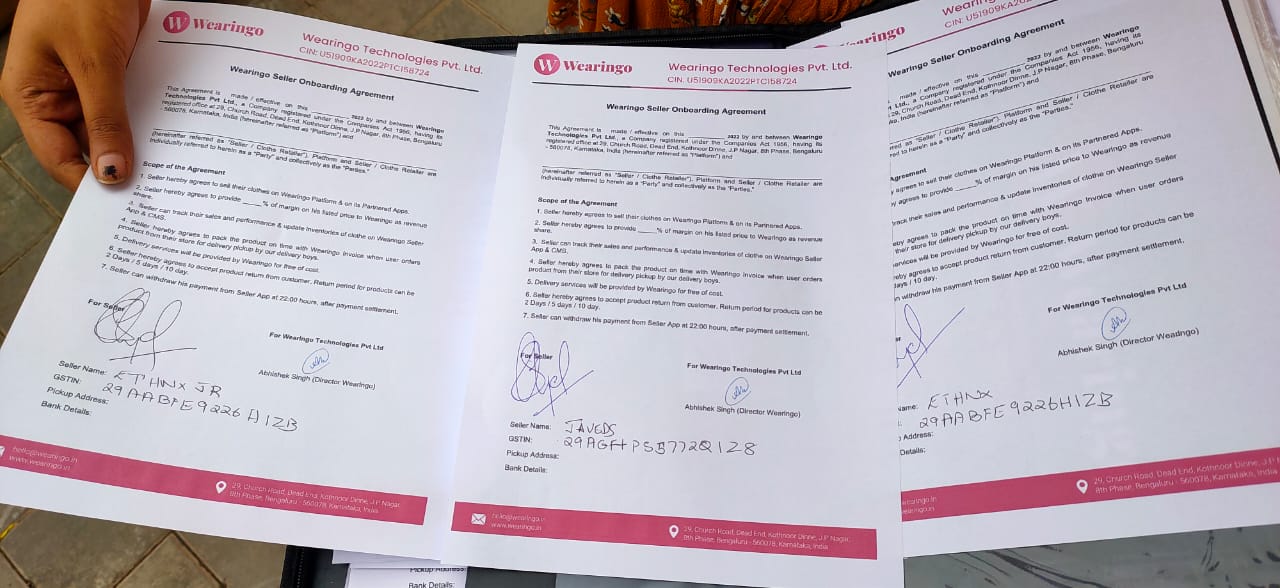 Wearingo
Wearingo Technologies Pvt. Ltd.
CIN: U51909KA2022PTC158724
Wearingo Seller Onboarding Agreement
This Agreement is made / effective on this 2022 by and between Wearingo
Technologies Pvt Ltd., a Company registered under the Companies Act 1956, having its
registered office at 29, Church Road, Dead End, Kothnoor Dinne, J.P Nagar, 8th Phase, Bengaluru
- 560078, Karnataka, India (hereinafter referred as "Platform") and
(hereinafter referred as "Seller / Clothe Retailer"). Platform and Seller / Clothe Retailer are
individually referred to herein as a "Party" and collectively as the "Parties."
Scope of the Agreement
1. Seller hereby agrees to sell their clothes on Wearingo Platform & on its Partnered Apps.
2. Seller hereby agrees to provide _____% of margin on his listed price to Wearingo as revenue
share.
3. Seller can track their sales and performance & update inventories of clothe on Wearingo Seller
App & CMS.
4. Seller hereby agrees to pack the product on time with Wearingo Invoice when user orders
product from their store for delivery pickup by our delivery boys.
5. Delivery services will be provided by Wearingo for free of cost.
6. Seller hereby agrees to accept product return from customer. Return period for products can be
2 Days / 5 days / 10 day.
7. Seller can withdraw his payment from Seller App at 22:00 hours, after payment settlement.
For Seller
For Wearingo Technologies Pvt Ltd
Abhishek Singh (Director Wearingo)
Seller Name: ETHNX JR
GSTIN: 29AABFE9226H1ZB
Pickup Address:
Bank Details:
hello@wearingo.in
www.wearingo.in
29, Church Road, Dead End, Kothnoor Dinne, J.P Nagar,
8th Phase, Bengaluru - 560078, Karnataka, India
Wearingo
Wearingo Technologies Pvt. Ltd.
CIN: U51909KA2022PTC158724
Wearingo Seller Onboarding Agreement
This Agreement is made / effective on this 2022 by and between Wearingo
Technologies Pvt Ltd., a Company registered under the Companies Act 1956, having its
registered office at 29, Church Road, Dead End, Kothnoor Dinne, J.P Nagar, 8th Phase, Bengaluru
- 560078, Karnataka, India (hereinafter referred as "Platform") and
(hereinafter referred as "Seller / Clothe Retailer"). Platform and Seller / Clothe Retailer are
individually referred to herein as a "Party" and collectively as the "Parties."
Scope of the Agreement
1. Seller hereby agrees to sell their clothes on Wearingo Platform & on its Partnered Apps.
2. Seller hereby agrees to provide _____% of margin on his listed price to Wearingo as revenue
share.
3. Seller can track their sales and performance & update inventories of clothe on Wearingo Seller
App & CMS.
4. Seller hereby agrees to pack the product on time with Wearingo Invoice when user orders
product from their store for delivery pickup by our delivery boys.
5. Delivery services will be provided by Wearingo for free of cost.
6. Seller hereby agrees to accept product return from customer. Return period for products can be
2 Days / 5 days / 10 day.
7. Seller can withdraw his payment from Seller App at 22:00 hours, after payment settlement.
For Seller
For Wearingo Technologies Pvt Ltd
Abhishek Singh (Director Wearingo)
Seller Name: JAVEDS
GSTIN:
Pickup Address:
Bank Details:
hello@wearingo.in
www.wearingo.in
29, Church Road, Dead End, Kothnoor Dinne, J.P Nagar,
8th Phase, Bengaluru - 560078, Karnataka, India
Pickup Address
Bank Details:
Wearingo
CIN: U51909KA20
Wearingo Seller Onboarding Agreement
made / effective on this 2022 by and between Wearingo
Ltd., a Company registered under the Companies Act 1956, having its
29, Church Road, Dead End, Kothnoor Dinne, J.P Nagar, 8th Phase, Bengaluru
(hereinafter referred as "Platform") and
as "Seller / Clothe Retailer"). Platform and Seller / Clothe Retailer are
to herein as a "Party" and collectively as the "Parties."
Agreement
agrees to sell their clothes on Wearingo Platform & on its Partnered Apps.
agrees to provide _____% of margin on his listed price to Wearingo as revenue
track their sales and performance & update inventories of clothe on Wearingo Seller
agrees to pack the product on time with Wearingo Invoice when user orders
their store for delivery pickup by our delivery boys.
services will be provided by Wearingo for free of cost.
agrees to accept product return from customer. Return period for products can be
days / 10 day.
withdraw his payment from Seller App at 22:00 hours, after payment settlement.
For Wearingo Technologies Pvt Ltd
Abhishek Singh (Director Wearingo)
Name: ETHNX
29AABFE9226H1ZB
Address:
Details:
29, Church Road, Dead End, Kothnoor Dinne, J.P
8th Phase, Bengaluru - 560078, Karnataka, India